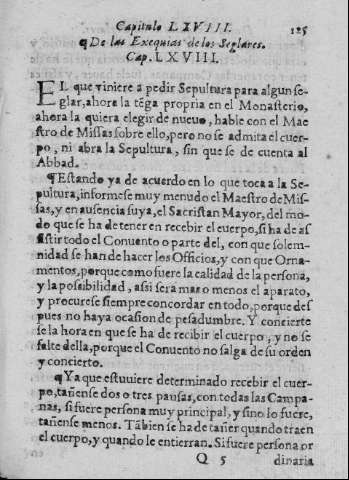 Capitulo LXVIII. 125
¶De las Exequias de los Seglares.
Cap. LXVIII.
EL que viniere a pedir Sepultura para algun se-
glar, ahore la tēga propria en el Monasterio,
ahora la quiera elegir de nueuo, hable con el Mae
stro de Missas sobre ello, pero no se admita el cuer-
po, ni abra la Sepultura, sin que se de cuenta al
Abbad.
¶Estando ya de acuerdo en lo que toca a la Se-
pultura, informese muy menudo el Maestro de Mis-
sas, y en ausencia suya, el Sacristan Mayor, del mo-
do que se ha de tener en recebir el cuerpo, si ha de as
sistir todo el Conuento o parte del, con que solem-
nidad se han de hacer los Officios, y con que Orna-
mentos, porque como fuere la calidad de la persona,
y la possibilidad, assi sera mas o menos el aparato,
y procurese siempre concordar en todo, porque des
pues no haya ocasion de pesadumbre. Y concierte
se la hora en que se ha de recibir el cuerpo, y no se
falte della, porque el Conuento no salga de su orden
y concierto.
¶Ya que estuuiere determinado recebir el cuer-
po, tañense dos o tres pausas, con todas las Campa-
nas, si fuere persona muy principal, y sino lo fuere,
tañense menos. Tābien se ha de tañer quando traen
el cuerpo, y quando le entierran. Si fuere persona or
Q 5 dinaria